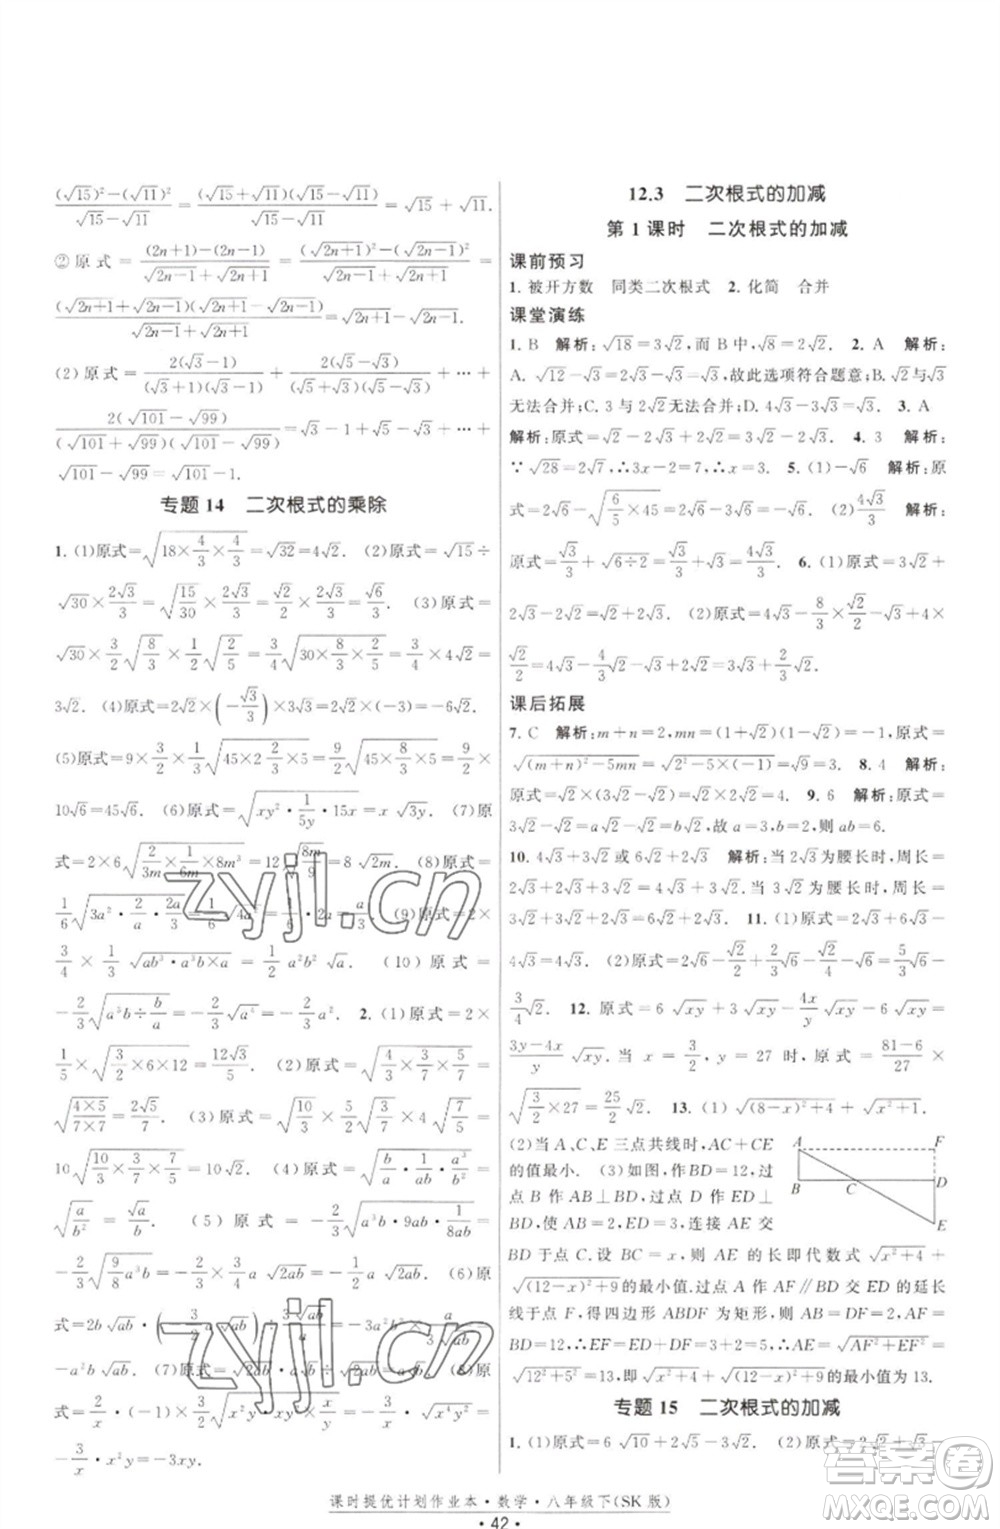 ((√15)²-(√11)²)/(√15-√11)=((√15+√11)(√15-√11))/(√15-√11)=√15+√11.
②原式=((2n+1)-(2n-1))/(√(2n-1)+√(2n+1))=
((√(2n+1)+√(2n-1))(√(2n+1)-√(2n-1)))/(√(2n-1)+√(2n+1))=√(2n+1)-√(2n-1).
(2)原式=2(√3-1)/((√3+1)(√3-1))+2(√5-√3)/((√5+√3)(√5-√3))+…+
2(√101-√99)/((√101+√99)(√101-√99))=√3-1+√5-√3+…+
√101-√99=√101-1.
专题 14 二次根式的乘除
1. (1)原式=√(18×4/3×4/3)=√32=4√2. (2)原式=√15÷
√30×2√3/3=√(15/30)×2√3/3=√2/2×2√3/3=√6/3. (3)原式=
√30×3/2√(8/3)×1/2√(2/5)=3/2×1/2√(30×8/3×2/5)=3/4×4√2=
3√2. (4)原式=2√2×(-√3/3)×3√3=-6√2.
(5)原式=9×3/2×1/3√(45×2 2/3×5)=9/2√(45×8/3×5)=9/2×
10√6=45√6. (6)原式=√(xy²·1/5y·15x)=x√3y. (7)原
式=2×6√(3/2m·1/6m·8m³)=12
1/6√(3a²·2a/
3/4×1/3√(ab³·a³b×a)=1/2a²b²√a. (10)原式=
-2/3√(a³b÷b/a)=-2/3a². 2. (1)原式=2×
1/5√(3×6×12)
√((4×5)/7)=2√5/7. (3)原式=√(10/3)×
10√(10/3×3/7×7/5)=10√2. (4)原式=√(b/a·1/ab)=
√(a/b²)=√a/b. (5)原式=-2/3√(9ab²·1/8ab)
-2/3√(9/8a³b)=-a√2ab. (6)原
式=2b√ab·(-3/2
-a²b√ab. (7)原式=
式=2/x·(-
-3/x·x²y=-3xy.
12.3 二次根式的加减
第 1 课时 二次根式的加减
课前预习
1. 被开方数 同类二次根式 2. 化简 合并
课堂演练
1. B 解析:√18=3√2,而 B 中,√8=2√2. 2. A 解析:
A. √12=2√3,故此选项符合题意;B. √2与√3
无法合并;C. 3 与 2√2无法合并;D. 4√3-√3=3√3. 3. A
解析:原式=√2-2√2+3√2=2√2. 4. 3 解析:
∵√28=2√7,∴3x-2=7,∴x=3. 5. (1)-√6 解析:原
式=2√6-√(6/5×45)=2√6-3√6=-√6. (2)4√3/3 解析:
原式=√3/3+√(6÷2)=√3/3+√3=4√3/3. 6. (1)原式=√2+
2√3-2√3=√2+2√3. (2)原式=4√3-8/3×√2/2-√3+4×
√2/2=4√3-4/3√2-√3+2√2=3√3+2/3√2.
课后拓展
7. C 解析:m+n=2,mn=(1+√2)(1-√2)=-1,原式=
√((m+n)²-5mn)=√(2²-5×(-1))=√9=3. 8. 4 解析:
原式=√2×√2+√2×√2=2+2=4. 9. 6 解析:原式=
3√2-√2=2√2=a√2-√2=b√2,故 a=3,b=2,则 ab=6.
10. 4√3+3√2或 6√2+2√3 解析:当 2√3为腰长时,周长=
2√3+2√3+3√2=4√3+3√2;当 3√2为腰长时,周长=
3√2+3√2+2√3=6√2+2√3. 11. (1)原式=2√3+6√3-
4√3=4√3. (2)原式=2√6-√2/2-√2/4+√6=3√6-
3/4√2. 12. 原式=6√xy+3√xy-4x/y√xy-6√xy=
(3y-4x)/y√xy. 当 x=3/2, y=27 时,原式=(81-6)/27×
√(3/2×27)=25/2√2. 13. (1)√((8-x)²+4)+√(x²+1).
(2)当 A、C、E 三点共线时,AC+CE
的值最小. (3)如图,作BD=12,过
点 B 作 AB⊥BD,过点 D 作 ED⊥
BD,使 AB=2,ED=3,连接 AE 交
BD于点 C. 设 BC=x, 则 AE 的长即代数式√(x²+4)+
√((12-x)²+9)的最小值.过点 A 作 AF∥BD交 ED 的延长
线于点 F,得四边形 ABDF 为矩形,则 AB=DF=2,AF=
BD=12,∴EF=ED+DF=3+2=5,∴AE=√(AF²+EF²)=
√(12²+5²)=13,即√(x²+4)+√((12-x)²+9)的最小值为 13.
A
F
B
C
D
E
专题 15 二次根式的加减
1. (1)原式=6√10+2√5-3√2. (2)原式=2√2
课时提优计划作业本·数学·八年级下(SK 版)
·42·
zyjl.cn
zyjl.cn
答案圈
MXQE.COM